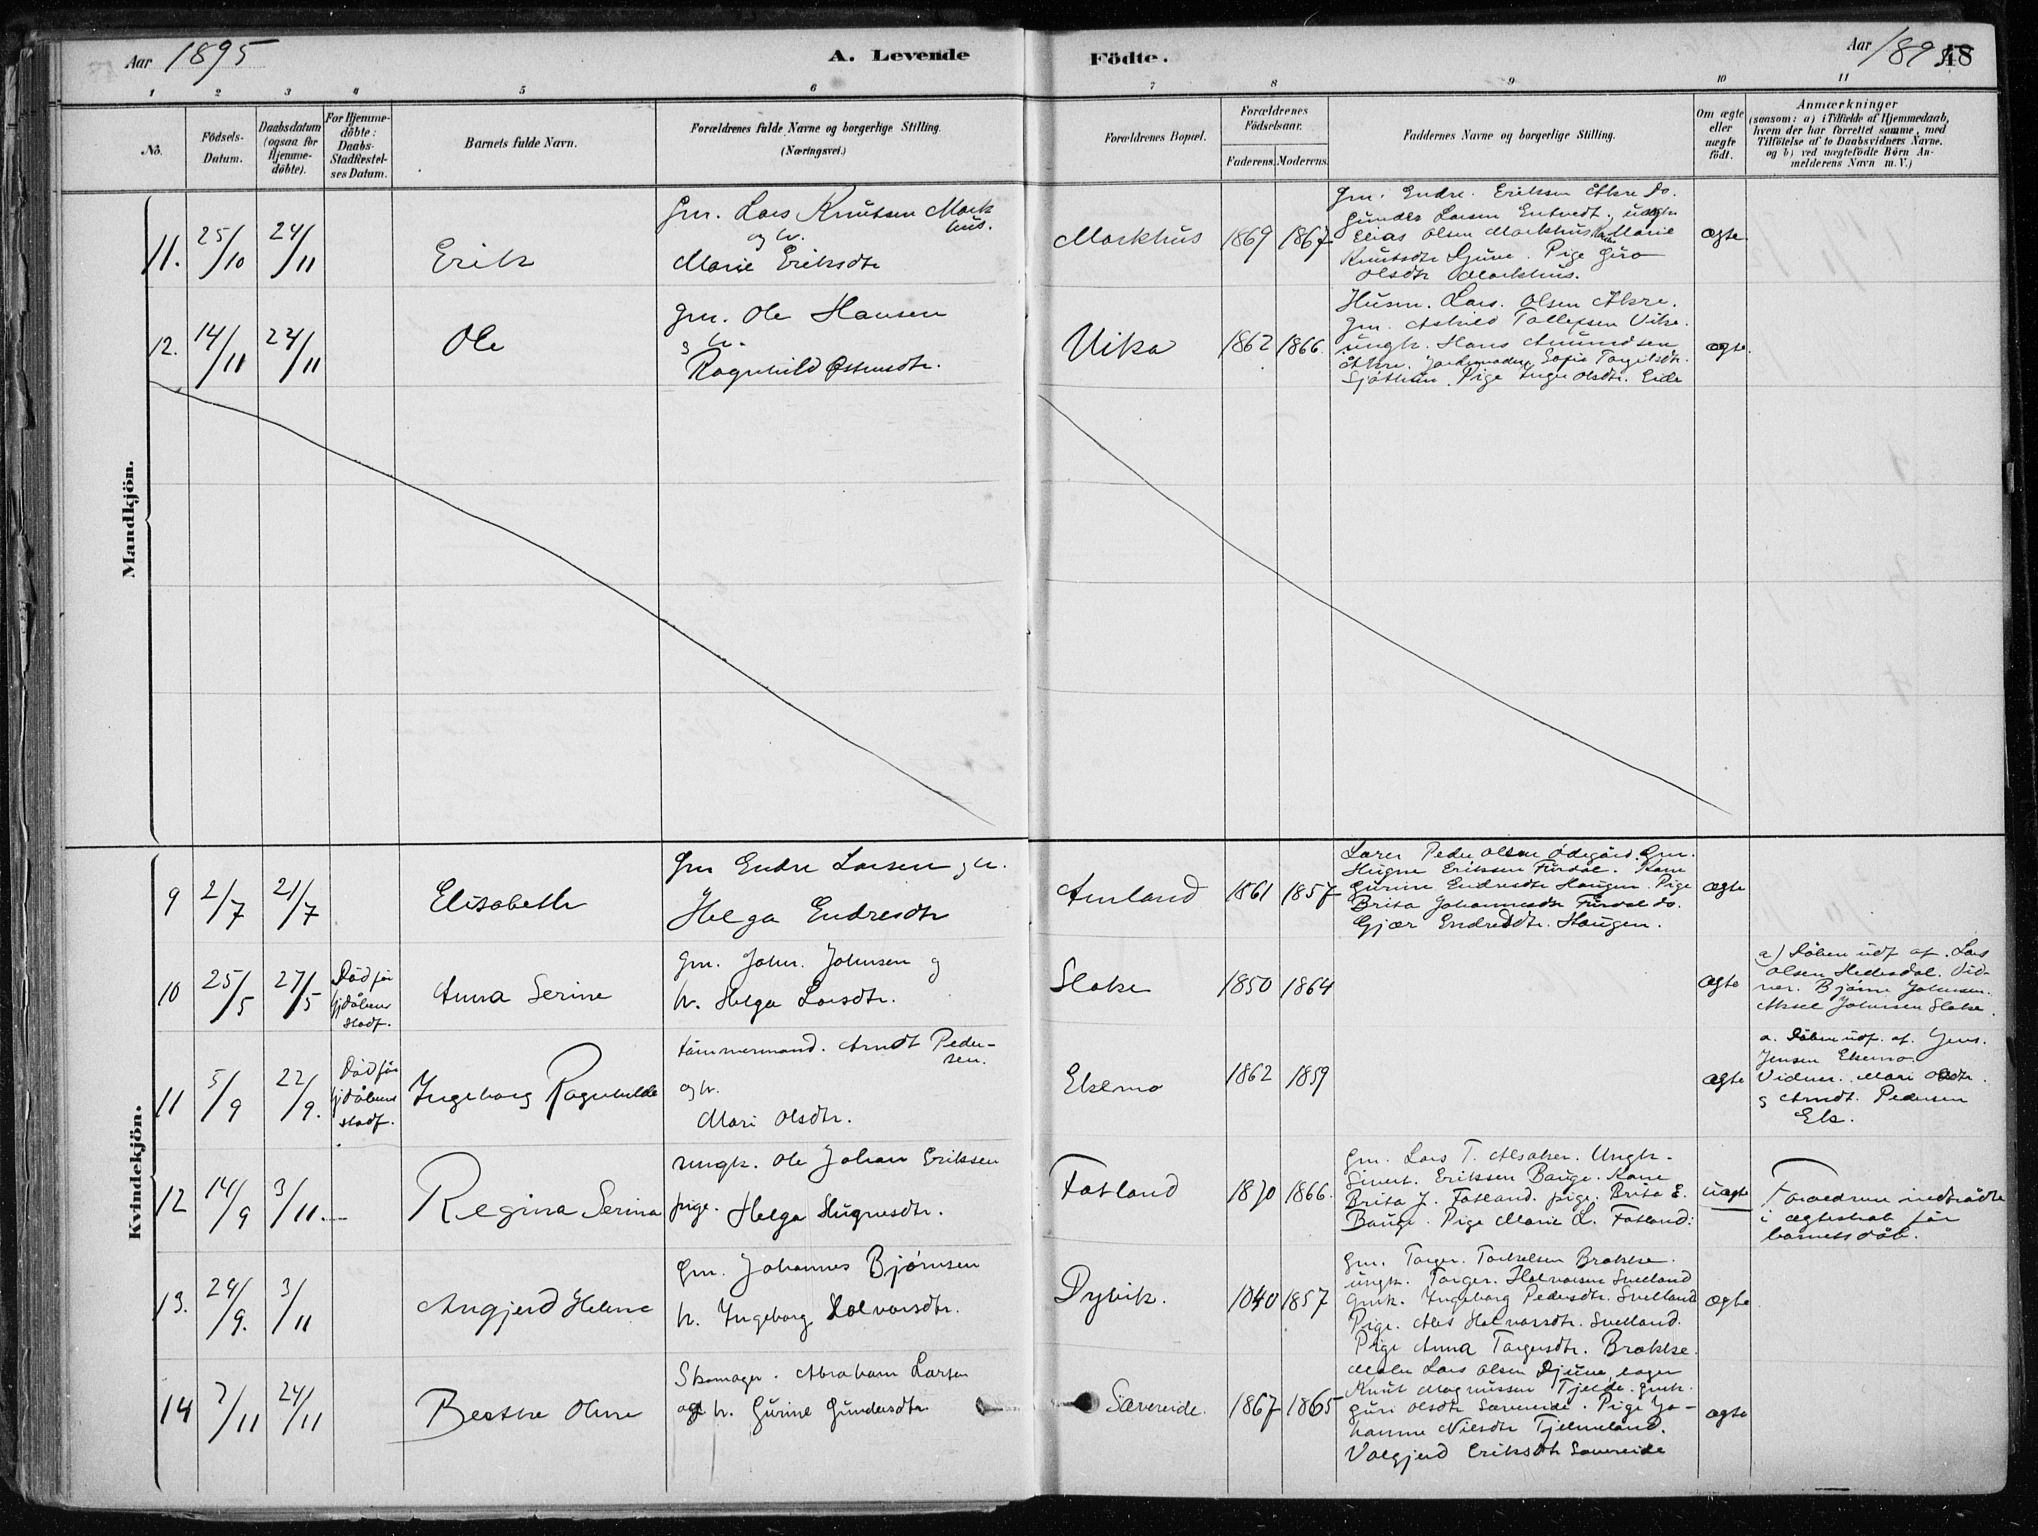 Aar 1895
A. Levende
Födte.
Aar 1895
48
1 2 3 4 5 6 7 8 9 10 11
No.
Födsels-Datum.
Daabsdatum (ogsaa for Hjemme-döbte).
For Hjemme-döbte: Daabs-Stadfæstel-ses Datum.
Barnets fulde Navn.
Forældrenes fulde Navne og borgerlige Stilling.
(Næringsvei.)
Forældrenes Bopæl.
Forældrenes Födselsaar.
Faderens. Moderens.
Faddernes Navne og borgerlige Stilling.
Om ægte eller uægte födt.
Anmærkninger
(saasom: a) i Tilfælde af Hjemmedaab,
hvem der har forrettet samme, med
Tilföielse af to Daabsvidners Navne.
og b) ved uægtefödte Börn An-
melderens Navn m. V.)
Mandkjön.
11. 25/10 24/11
Erik
Gm. Lars Knutsen Mark
hus.
og h.
Marie Eriksdtr
Markhus
1869 1867
Gm. Endre Eriksen Åkre Do.
Gunder Larsen Entvedt, ungk.
Elias Olsen Markhus Marie
Knutsdtr Djuve. Pige Giro
Olsdtr Markhus.
ægte
12. 14/11 24/11
Ole
Gm. Ole Hansen
g h.
Ragnhild Østensdtr.
Vika
1862 1866.
Husm. Lars Olsen Åkre.
Gm. Askild Tollefsen Vika.
ungk. Hans Amundsen
Åkre. Jordemoder Sofie Torgilsdtr.
Sjøthun. Pige Inger Olsdtr. Eide
ægte.
Kvindekjön.
9 2/7 21/7
Elisabeth
Gm Endre Larsen g h.
Helga Endresdtr
Amland
1861 1857
Lærer Peder Olsen Ødegård. Gm.
Hugne Eriksen Furdal. Kone
Gurine Endresdtr Haugen. Pige
Brita Johannesdtr Furdal do.
Gjær Endresdtr. Haugen.
ægte
10 25/5 27/5
Död för
hjdåbens
stadf.
Anna Serine
Gm. John. Johnsen g
h. Helga Larsdtr.
Sloke
1850 1864
ægte
a) Dåben udf af. Lars
Olsen Hettesdal. Vid-
ner. Bjarne Johnsen.
Aksel Johnsen Sloke.
11 5/9 22/9.
Död för
hjdåbens
stadf.
Ingeborg Ragnhilde
tømmermand. Arndt Peder-
sen.
og h.
Mari Olsdtr.
Ekemo
1862 1859
ægte
a. Dåben udf. af. Jens.
Jensen Ekemo.
Vidner. Mari Olsdtr.
g Arndt. Pedersen
Ek.
12 14/9 3/11. —
Regina Serina
ungk. Ole Johan Eriksen
pige. Helga Hugnesdtr.
Fatland
1870 1866.
Gm. Lars T. Alsaker. Ungk.
Sivert. Eriksen Bauge. Kone
Brita J. Fatland. pige. Brita E.
Bauge. Pige Marie L. Fatland.
uægte
Forældrene indtrådte
i ægteskab för
barnets dåb.
13. 24/9. 3/11
Angjerd Helene
Gm. Johannes Bjørnsen
h. Ingeborg Halvorsdtr.
Dyvik.
1040 1857
Gm. Torger. Torkelsen Brakke.
ungk. Torger. Halvorsen Svelland
Gmk. Ingeborg Pedersdtr. Svelland
Pige. Ales Halvorsdtr. Svelland.
Pige Anna Torgersdtr. Brakke.
ægte
14 7/11 24/11
Berthe Oline
Skomager. Abraham Larsen
og h. Gurine Gundersdtr
Sævereide.
1867 1865
Maler Lars Olsen Djuve,
Knut Magnussen Tjelde. Gmk.
Guri Olsdtr Sævereide. Pige Jo-
hanne Nilsdtr Tjelmeland.
Valgjerd Eriksdtr Sævereide
ægte